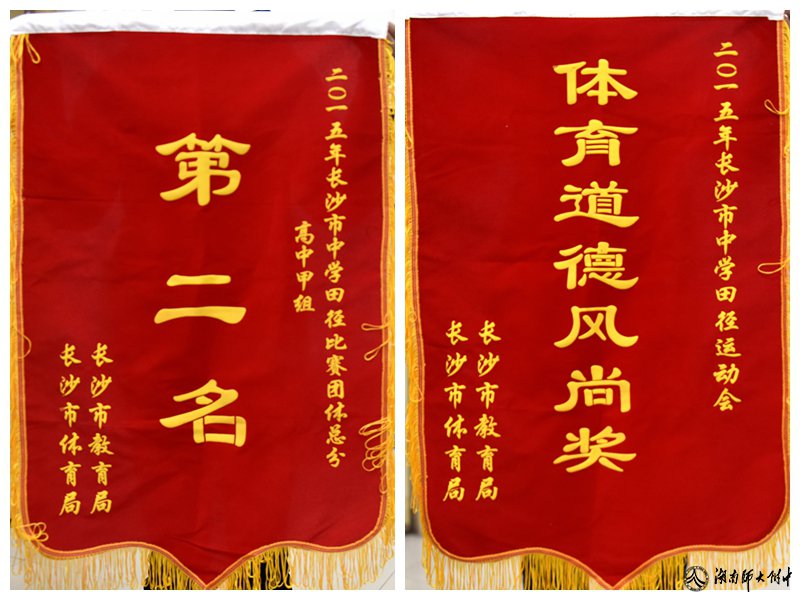 二〇一五年长沙市中学田径比赛团体总分
高中甲组
第二名
长沙市教育局
长沙市体育局
二〇一五年长沙市中学田径运动会
体育道德风尚奖
长沙市教育局
长沙市体育局
湖南师大附中